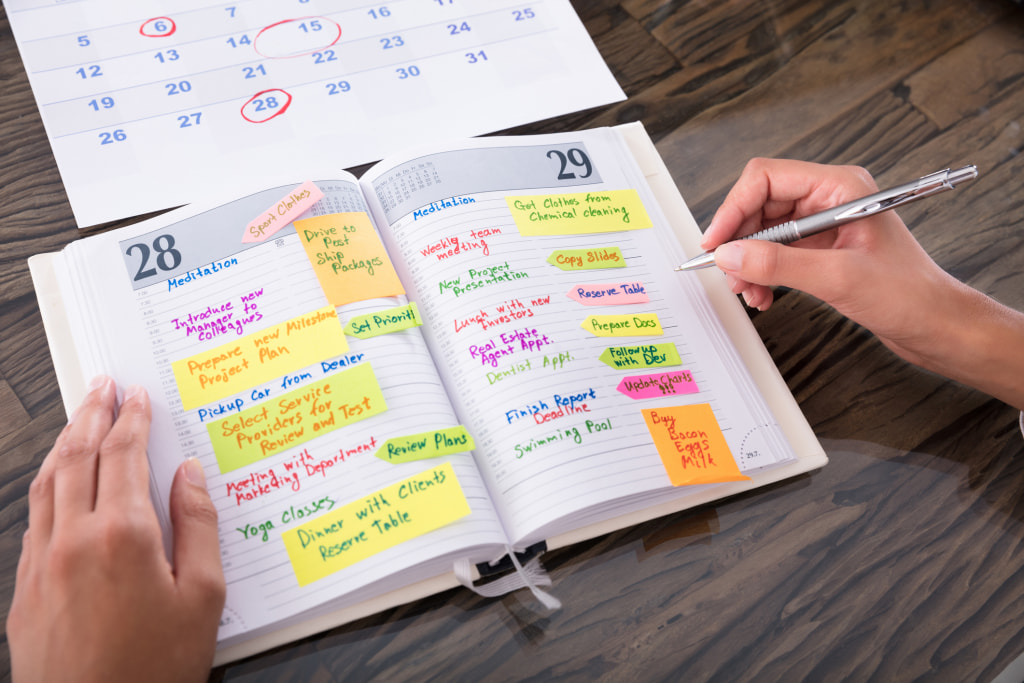 5 6 7
12 13 14 15 16
19 20 21 22 23 24 25
26 27 28 29 30 31
28
Sport Clothes
Meditation
Drive to
Post
Ship
Packages
Introduce new
Manager to
colleagues
Set Prioriti
Prepare new Milestone
Project Plan
Pickup Car from Dealer
Select Service
Providers for Test
Review and
Review Plans
Meeting with
Marketing Department
Yoga Classes
Dinner with Clients
Reserve Table
29
Meditation
Get Clothes from
Chemical cleaning
Weekly team
meeting
Copy Slides
New Project
Presentation
Reserve Table
Lunch with new
Investors
Prepare Docs
Real Estate
Agent Appt.
Follow up
with Dev
Dentist Appt.
Update Charts
!!!
Finish Report
Deadline
Buy
Bacon
Eggs
Milk
Swimming Pool
29.7.